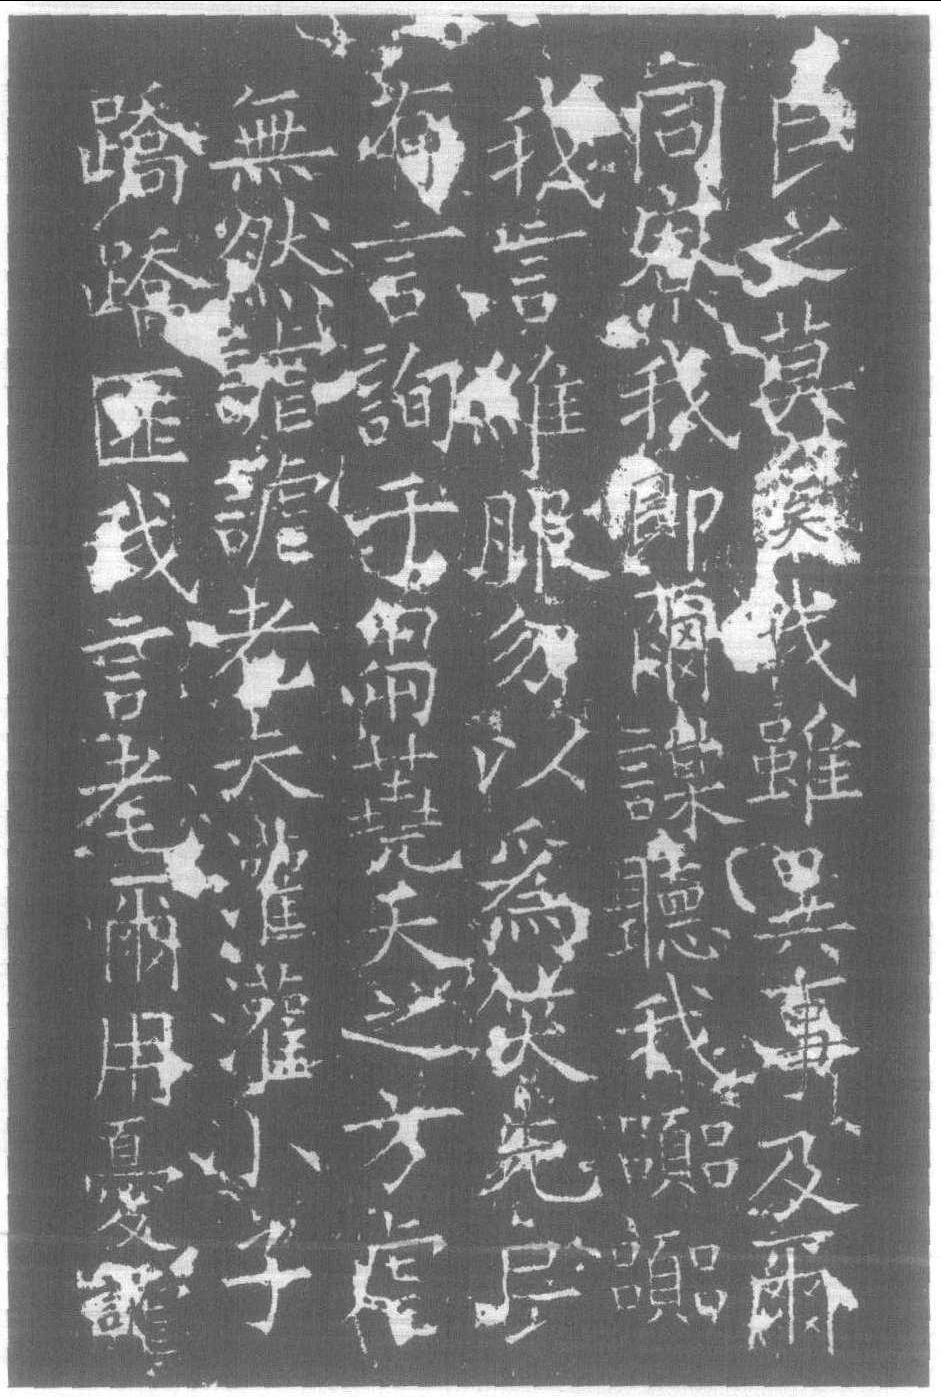 民之莫矣我雖異事及爾
同寮我即爾謀聽我囂囂
我言維服勿以爲笑先民
有言詢于芻蕘天之方虐
無然謔謔老夫灌灌小子
蹻蹻匪我言耄爾用憂謔